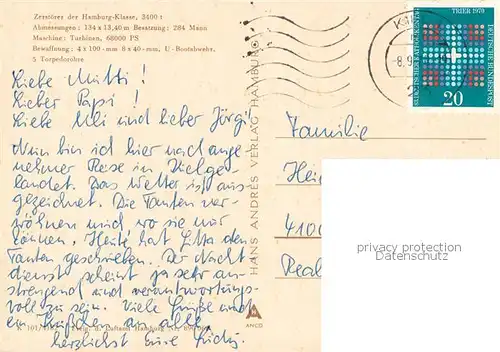 Zerstörer der Hamburg-Klasse, 3400 t
Abmessungen : 134 x 13,40 m Besatzung : 284 Mann
Maschine : Turbinen, 68000 PS
Bewaffnung : 4 x 100-mm 8 x 40-mm, U-Bootabwehr,
5 Torpedorohre
Liebe Mutti !
Lieber Papi !
Liebe Uli und lieber Jörgi!
Nun bin ich hier nach ange
nehmer Reise in Kiel ge-
landet. Das Wetter ist aus
gezeichnet. Die Tanten ver-
wöhnen mich, wo sie nur
können. Heute hat den
Tanten geschrieben. Der Nacht
dienst scheint ja sehr an-
strengend und verantwortungs-
voll zu sein. Viele Grüße und
ein Küßchen an alle,
herzlichst Eure
HANS ANDRES VERLAG HAMBURG
ANCO
-8.9
TRIER 1970
DEUTSCHER KATHOLIKENTAG
DEUTSCHE BUNDESPOST
20
Familie
Hei
4100
Real
privacy protection
Datenschutz